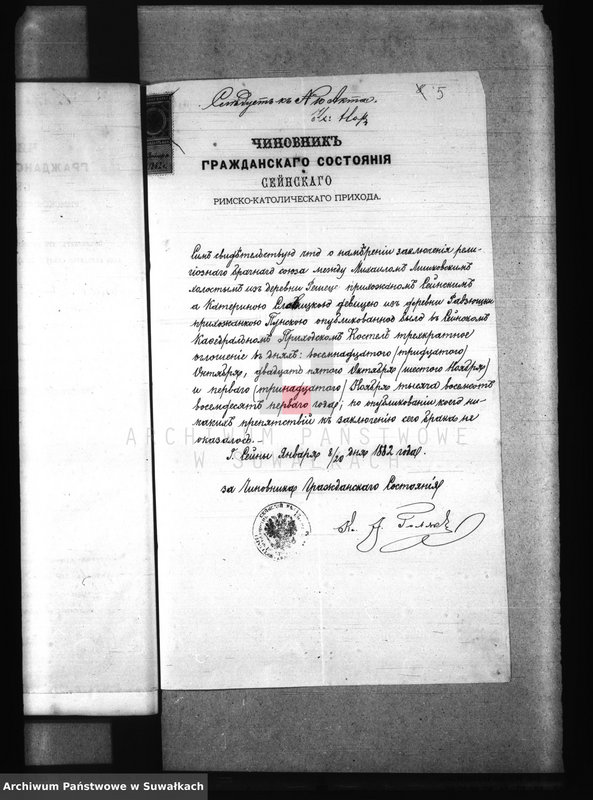 Слѣдуетъ къ № Акта.
5
ЧИНОВНИКЪ
ГРАЖДАНСКАГО СОСТОЯНІЯ
СЕЙНСКАГО
РИМСКО-КАТОЛИЧЕСКАГО ПРИХОДА.
Симъ свидѣтельствую что о намѣреніи заключенія рели-
гіознаго брачнаго союза между Михаиломъ Лишковскимъ
холостымъ изъ деревни прихожаномъ Сейнскимъ
а Катериною девицею изъ деревни
прихожанкою Пунскою опубликованное было въ Сейнскомъ
Каѳедральномъ Приходскомъ Костелѣ трехкратное
оглошеніе въ дняхъ: восемнадцатого /тридцатого/
Октября, двадцать пятого Октября /шестого Ноября/
и первого /тринадцатого/ Ноября тысяча восемьсотъ
восемдесятъ первого года; по опубликованіи коего ни-
какихъ препятствій къ заключенію сего брака не
оказалось.
Г. Сейны Января 8/20 дня 1882 года.
за Чиновника Гражданскаго Состоянія
ARCHIWUM PAŃSTWOWE
W SUWAŁKACH
Archiwum Państwowe w Suwałkach